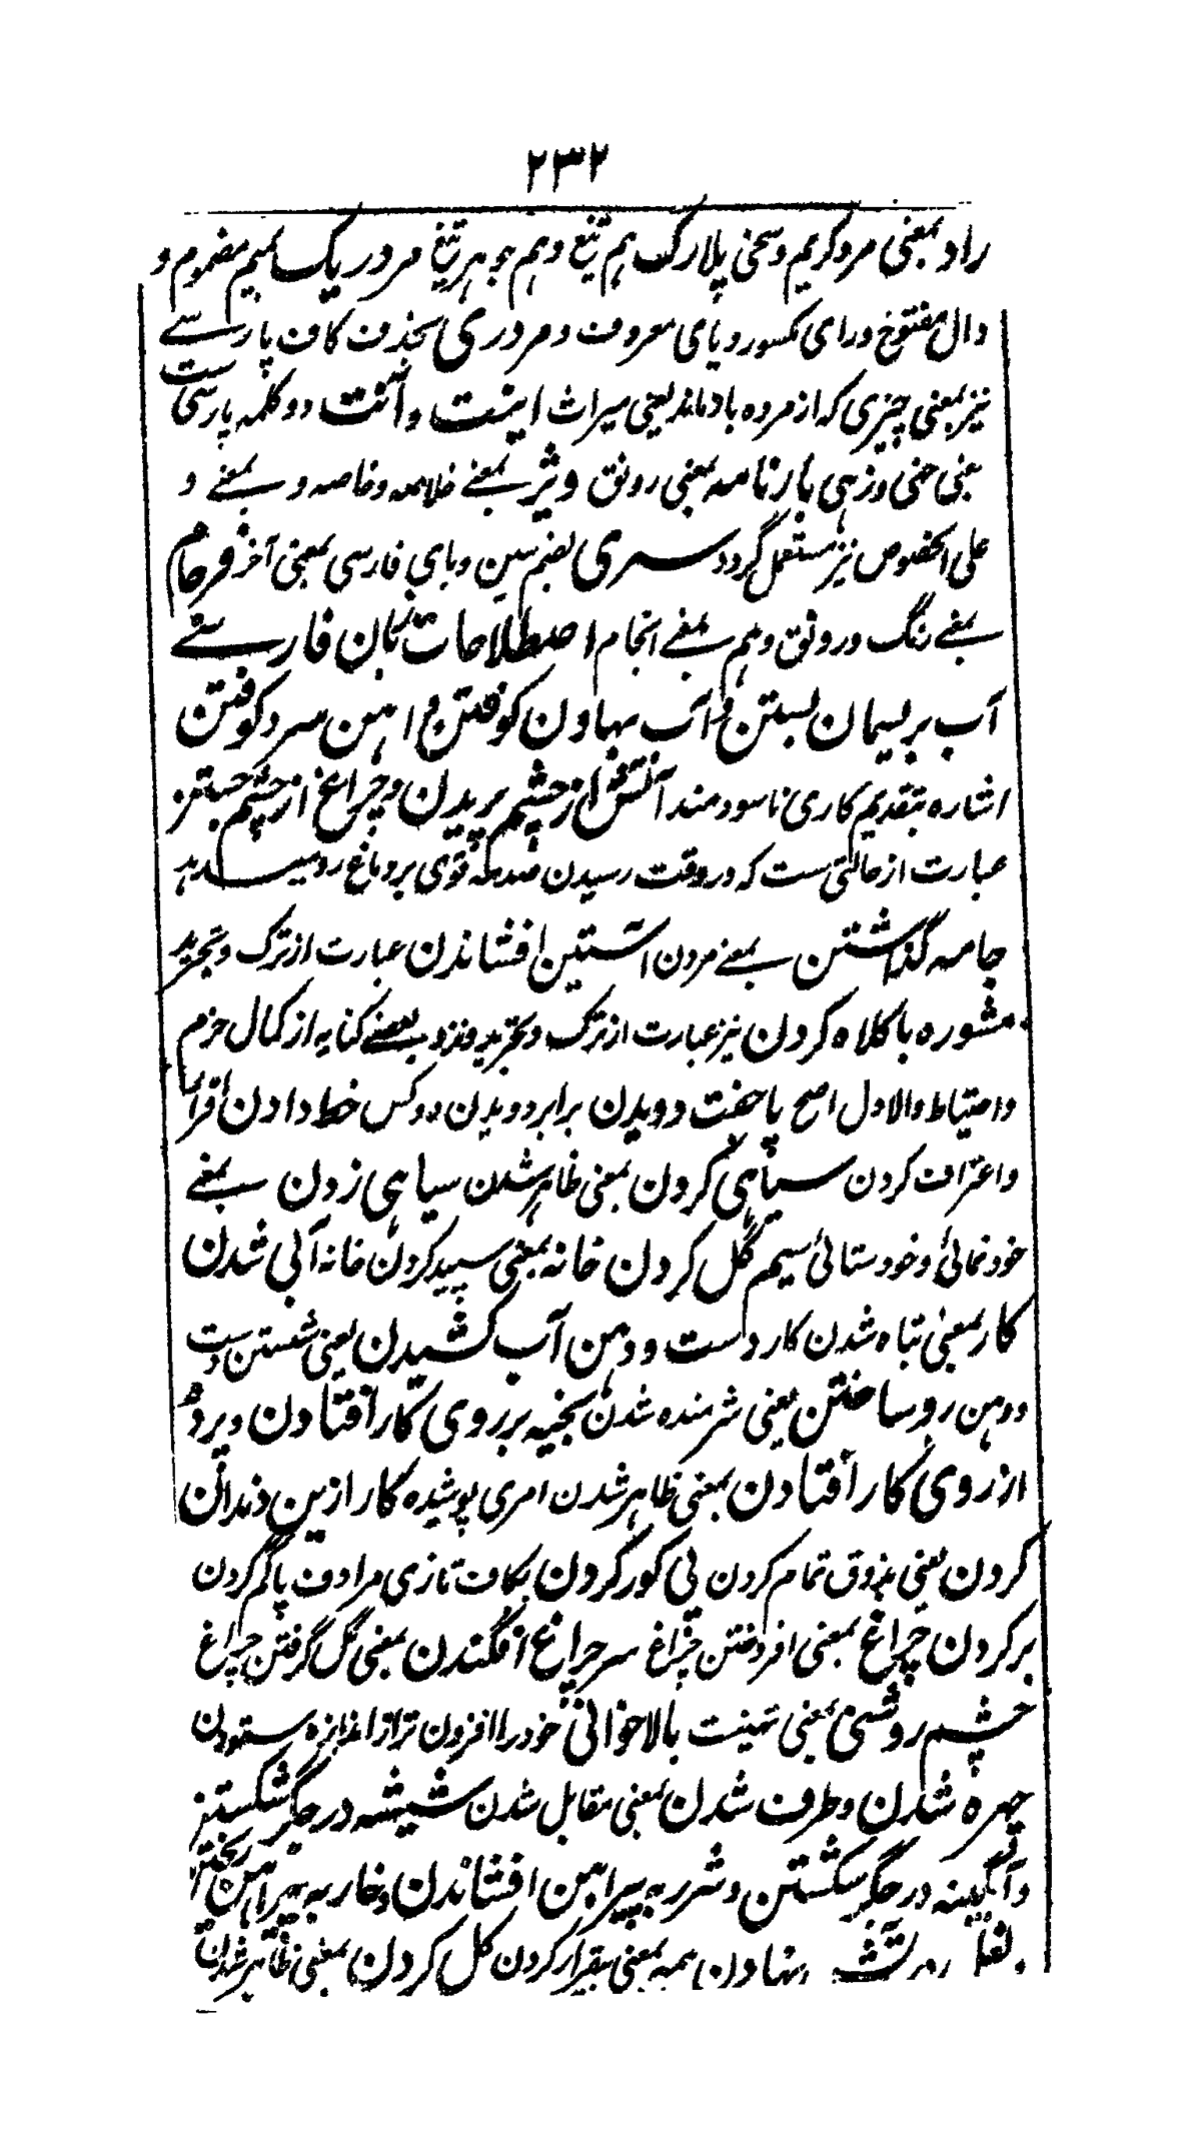 ۲۳۲
راد بمعنی مرد کریم و سخی پلارک ہم تیغ و ہم جوہر تیغ مردریگ بمیم مضموم و
دال مفتوح و رای مکسور و یای معروف و مردری بحذف کاف پارسے
نیز بمعنی چیزی که از مرده باز ماند یعنی میراث اینت و آنت دو کلمه پارسی ست
بمعنی خہی و زہی بارنامه بمعنی رونق ویژ بمعنے خلاصه و خاصه و بمعنے و
علی الخصوص نیز مستعمل گردد سپری بضم سین و بای فارسی بمعنی آخر فرجام
بمعنے رنگ و رونق و ہم بمعنے انجام اصطلاحات زبان فارسے
آب بریسمان بستن و آب بہاون کوفتن و آہن سرد کوفتن
اشاره بتقدیم کاری ناسودمند آتش از چشم پریدن و چراغ از چشم جستن
عبارت از حالتی ست که در وقت رسیدن صدمه قوی بر دماغ رو میدہد
جامه گذاشتن بمعنے مردن آستین افشاندن عبارت از ترک و تجرید
مشوره با کلاه کردن نیز عبارت از ترک و تجرید و نزد بعضے کنایه از کمال حزم
و احتیاط و الاول اصح پا جفت دویدن برابر دویدن دو کس خط دادن اقرار
و اعتراف کردن سیاہی کردن بمعنی ظاہر شدن سیاہی زدن بمعنے
خودنمائی و خودستائی سیم گل کردن خانه بمعنی سپید کردن خانه آبی شدن
کار بمعنی تباه شدن کار دست و دہن آب کشیدن یعنی شستن دست
و دہن روسا ختن یعنی شرمنده شدن بخیه بر روی کار افتادن و پرده
از روی کار افتادن بمعنی ظاہر شدن امری پوشیده کار از بن دندان
کردن یعنی بذوق تمام کردن پی کور کردن بکاف تازی مرادف پا گم کردن
بر کردن چراغ بمعنی افروختن چراغ سر چراغ افگندن بمعنی گل گرفتن چراغ
چشم روشنی بمعنی تہنیت بالاخوانی خود را افزون تر از اندازه ستودن
چہره شدن و طرف شدن بمعنی مقابل شدن شیشه در جگر شکستن
و آبگینه در جگر شکستن و شرر به پیراہن افشاندن و خار به پیراہن ریختن
نہادن ہمه بمعنی بیقرار کردن گل کردن بمعنی ظاہر شدن